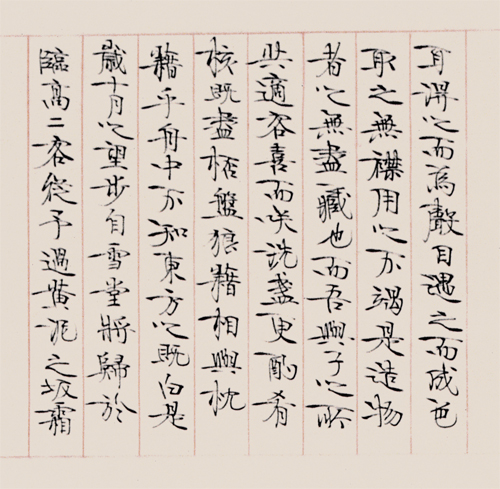 耳得之而為聲目遇之而成色
取之無襟用之不竭是造物
者之無盡藏也而吾與子之所
共適客喜而咲洗盞更酌肴
核既盡桮盤狼籍相與枕
籍乎舟中不知東方之既白是
歲十月之望步自雪堂將歸於
臨高二客從予過黃泥之坂霜